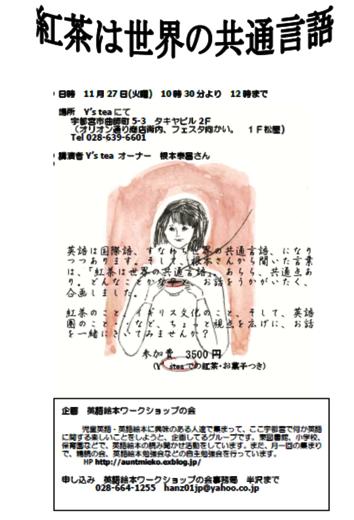 紅茶は世界の共通言語
日時　11月27日(火曜)　10時30分より　12時まで
場所　Y's tea にて
宇都宮市曲師町 5-3　タキヤビル 2F
(オリオン通り商店街内、フェスタ向かい。　1F松屋)
Tel 028-639-6601
講演者 Y's tea オーナー　根本泰昌さん
英語は国際語、すなわち世界の共通言語、になり
つつあります。そして、根本さんから聞いた言葉
は、「紅茶は世界の共通言語」。あらら、共通点あ
り。どんなことかな？と、お話をうかがいたく、
企画しました。
紅茶のこと、イギリス文化のこと、そして、英語
圏のこと・・など、ちょっと視点を広げに、お話
を一緒にきいてみませんか？
参加費　3500円
(Y's teaでの紅茶・お菓子つき)
企画　英語絵本ワークショップの会
児童英語・英語絵本に興味のある人達で集まって、ここ宇都宮で何か英語
に関する楽しいことをしようと、企画してるグループです。東図書館、小学校、
保育園などで、英語絵本の読み聞かせ活動をしています。また、月一回の集まり
で、情報の会、英語絵本勉強会などの自主勉強会を行っています。
HP http://auntmieko.exblog.jp/
申し込み　英語絵本ワークショップの会事務局　半沢まで
028-664-1255　hanz01jp@yahoo.co.jp